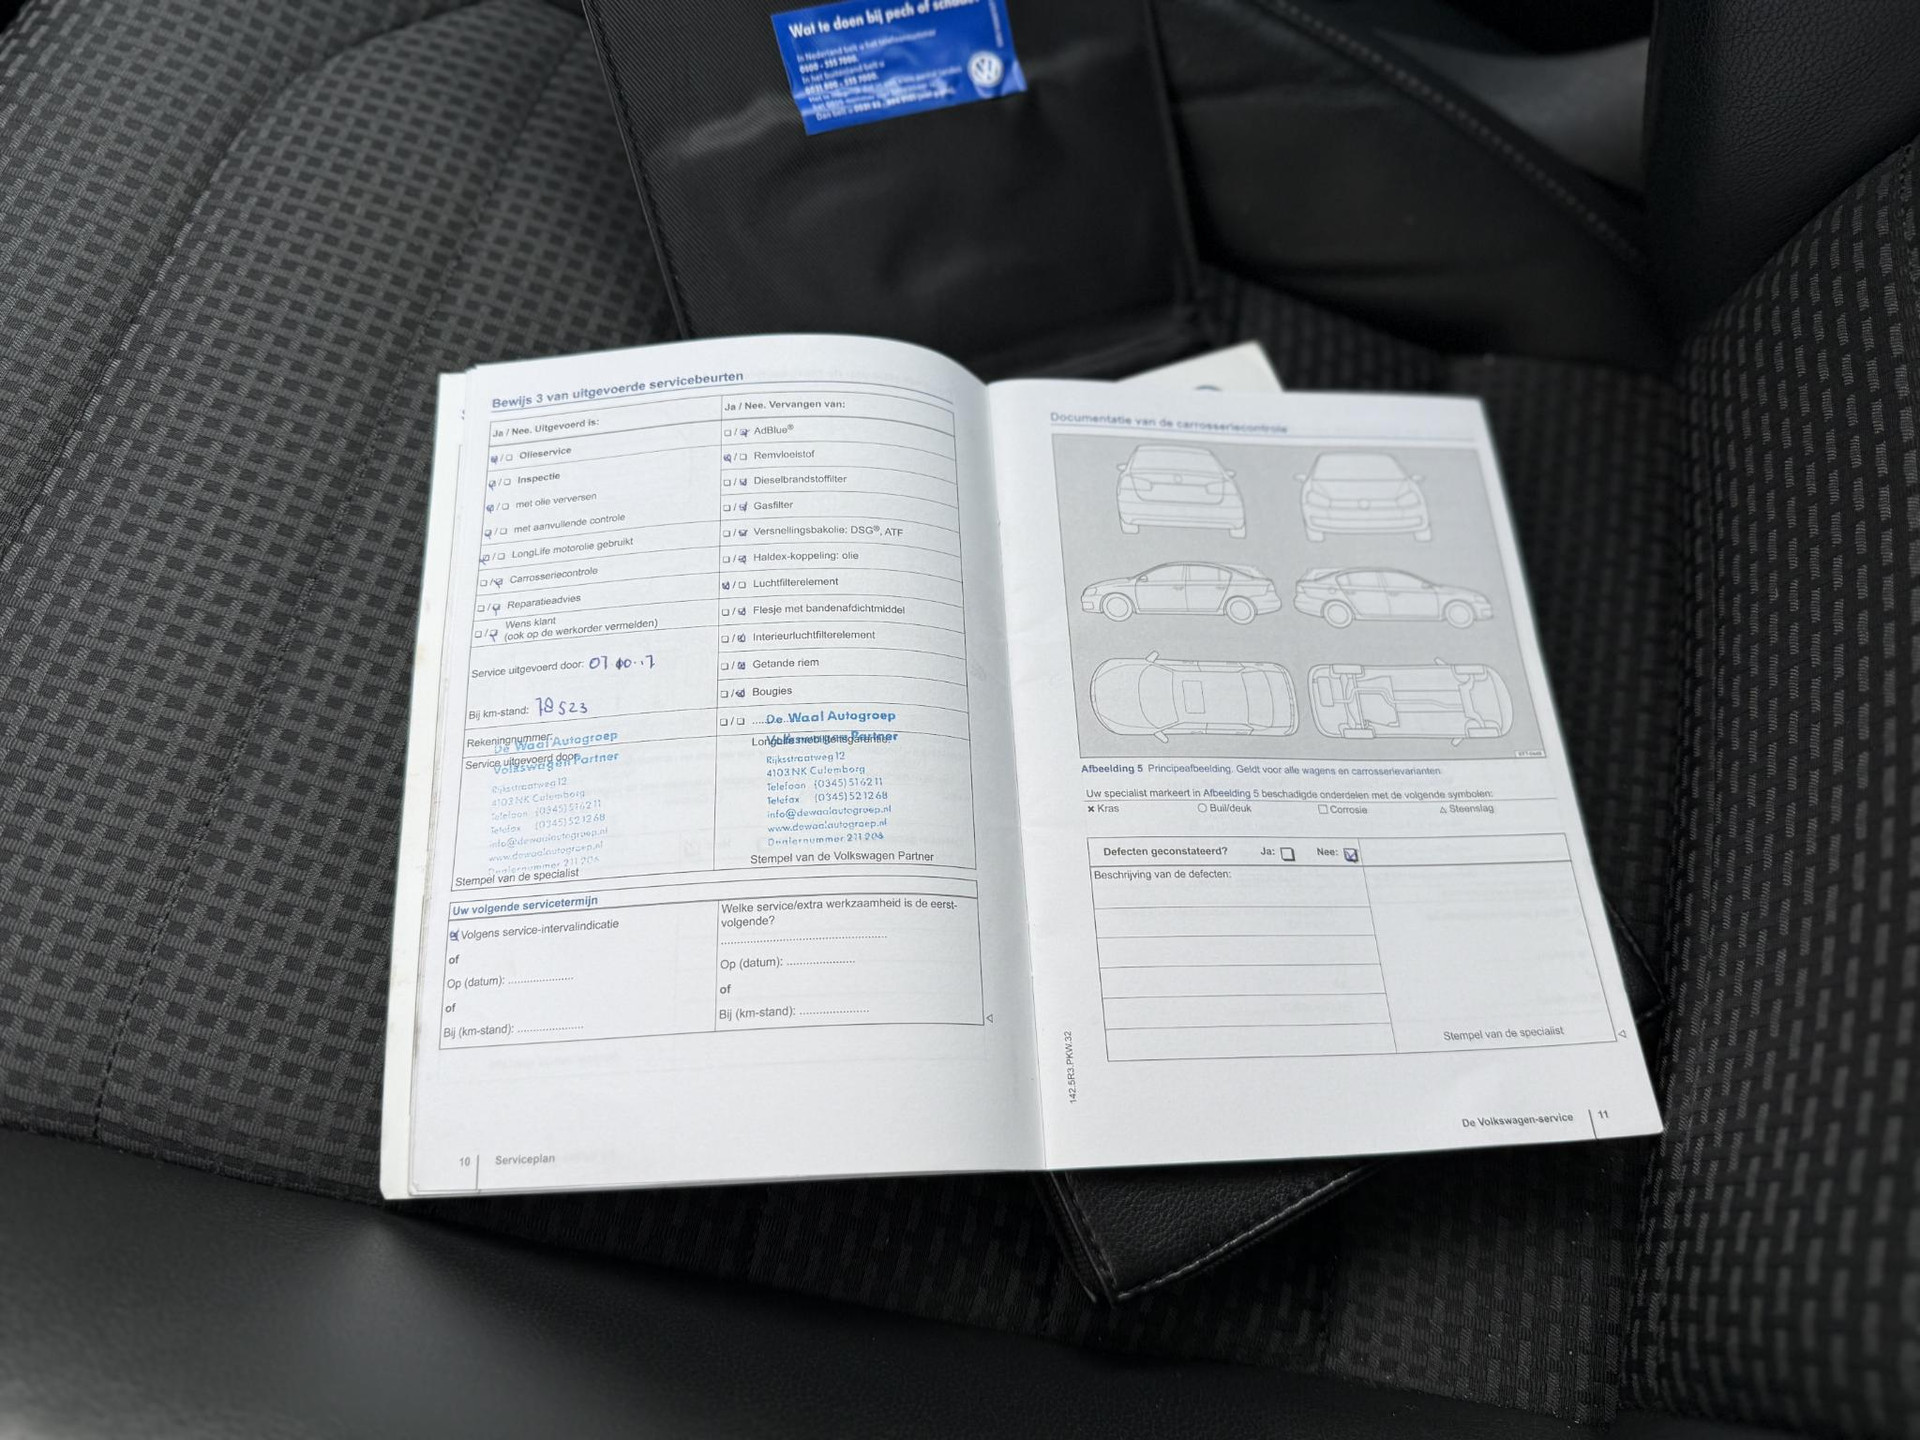 Wat te doen bij pech of schade?
In Nederland belt u het telefoonnummer
In het buitenland belt u
Bewijs 3 van uitgevoerde servicebeurten
Ja / Nee. Uitgevoerd is:
❑/❑ Olieservice
❑/❑ Inspectie
❑/❑ met olie verversen
❑/❑ met aanvullende controle
❑/❑ LongLife motorolie gebruikt
❑/❑ Carrosseriecontrole
❑/❑ Reparatieadvies
❑/❑ Wens klant
(ook op de werkorder vermelden)
Service uitgevoerd door:
Bij km-stand: 78523
Rekeningnummer:
Service uitgevoerd door:
De Waal Autogroep
Volkswagen Partner
Rijksstraatweg 12
4103 NK Culemborg
Telefoon (0345) 516211
Telefax (0345) 521268
info@dewaalautogroep.nl
www.dewaalautogroep.nl
Dealernummer 211 206
Stempel van de specialist
Ja / Nee. Vervangen van:
❑/❑ AdBlue®
❑/❑ Remvloeistof
❑/❑ Dieselbrandstoffilter
❑/❑ Gasfilter
❑/❑ Versnellingsbakolie: DSG®, ATF
❑/❑ Haldex-koppeling: olie
❑/❑ Luchtfilterelement
❑/❑ Flesje met bandenafdichtmiddel
❑/❑ Interieurluchtfilterelement
❑/❑ Getande riem
❑/❑ Bougies
❑/❑ ......
De Waal Autogroep
Volkswagen Partner
Rijksstraatweg 12
4103 NK Culemborg
Telefoon (0345) 516211
Telefax (0345) 521268
info@dewaalautogroep.nl
www.dewaalautogroep.nl
Dealernummer 211 206
Stempel van de Volkswagen Partner
Uw volgende servicetermijn
Volgens service-intervalindicatie
of
Op (datum): ....................
of
Bij (km-stand): ....................
Welke service/extra werkzaamheid is de eerst-
volgende?
Op (datum): ....................
of
Bij (km-stand): ....................
10 Serviceplan
Documentatie van de carrosseriecontrole
Afbeelding 5 Principeafbeelding. Geldt voor alle wagens en carrosserievarianten.
Uw specialist markeert in Afbeelding 5 beschadigde onderdelen met de volgende symbolen:
× Kras ○ Buil/deuk □ Corrosie △ Steenslag
Defecten geconstateerd? Ja: ❑ Nee: ☑
Beschrijving van de defecten:
Stempel van de specialist
142.5R3.PKW.32
De Volkswagen-service 11